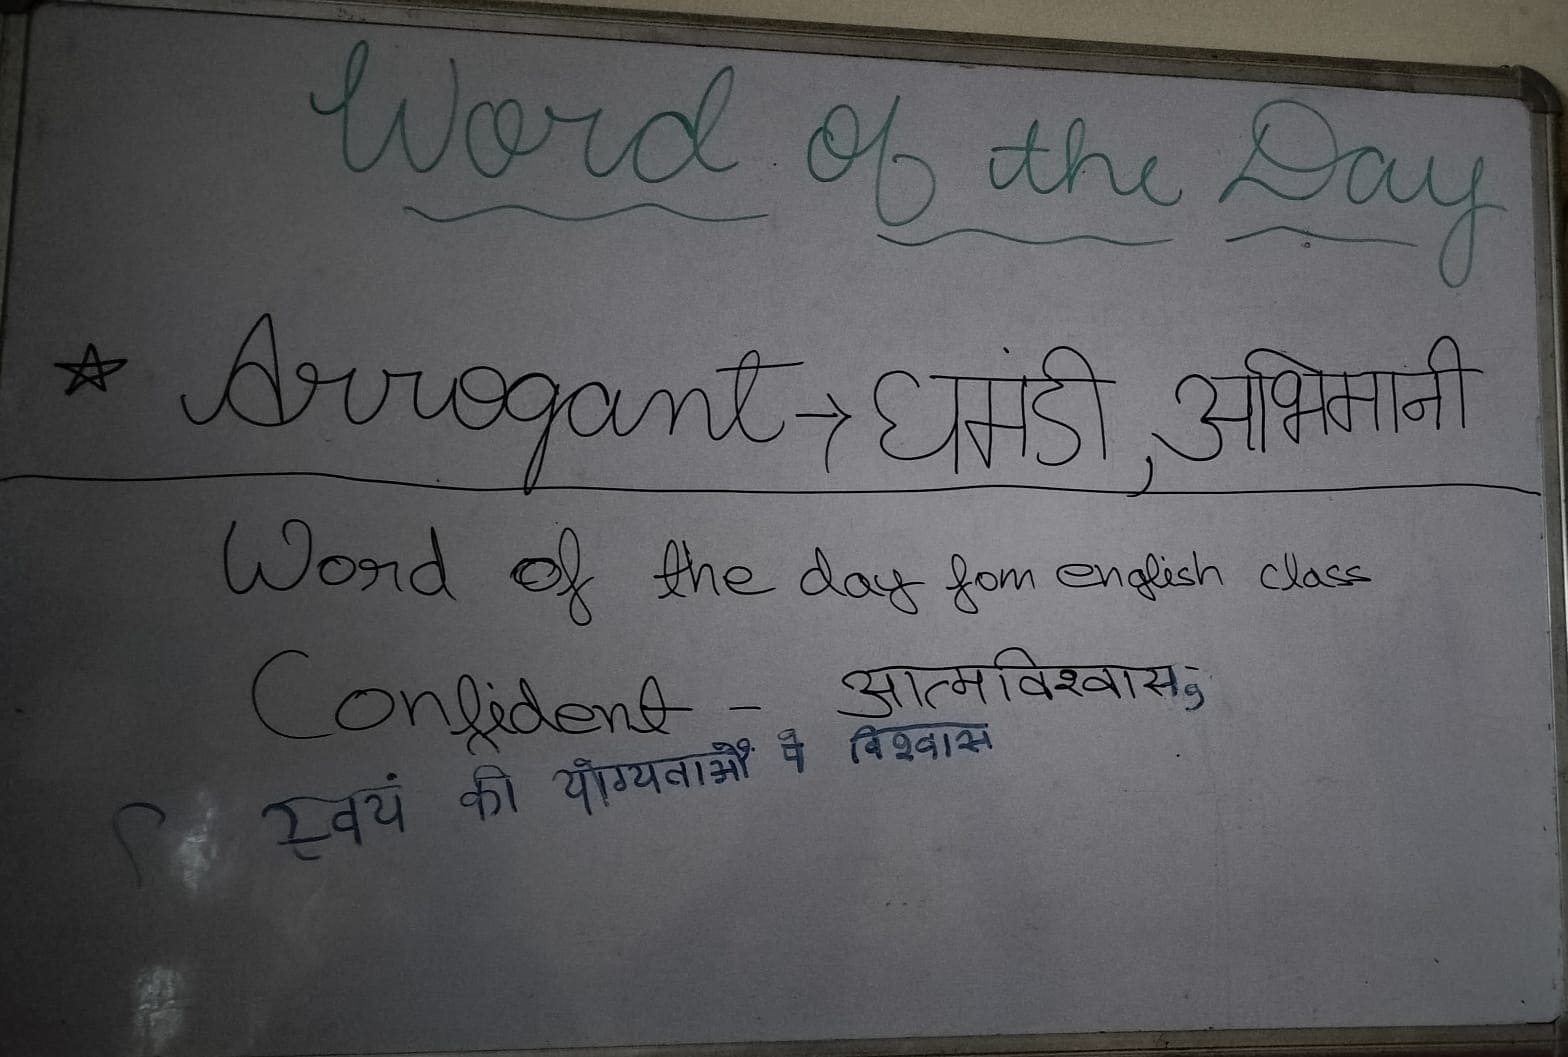 Word of the Day
☆ Arrogant → घमंडी, अभिमानी
Word of the day fom english class
Confident - आत्मविश्वास,
स्वयं की योग्यताओं पे विश्वास